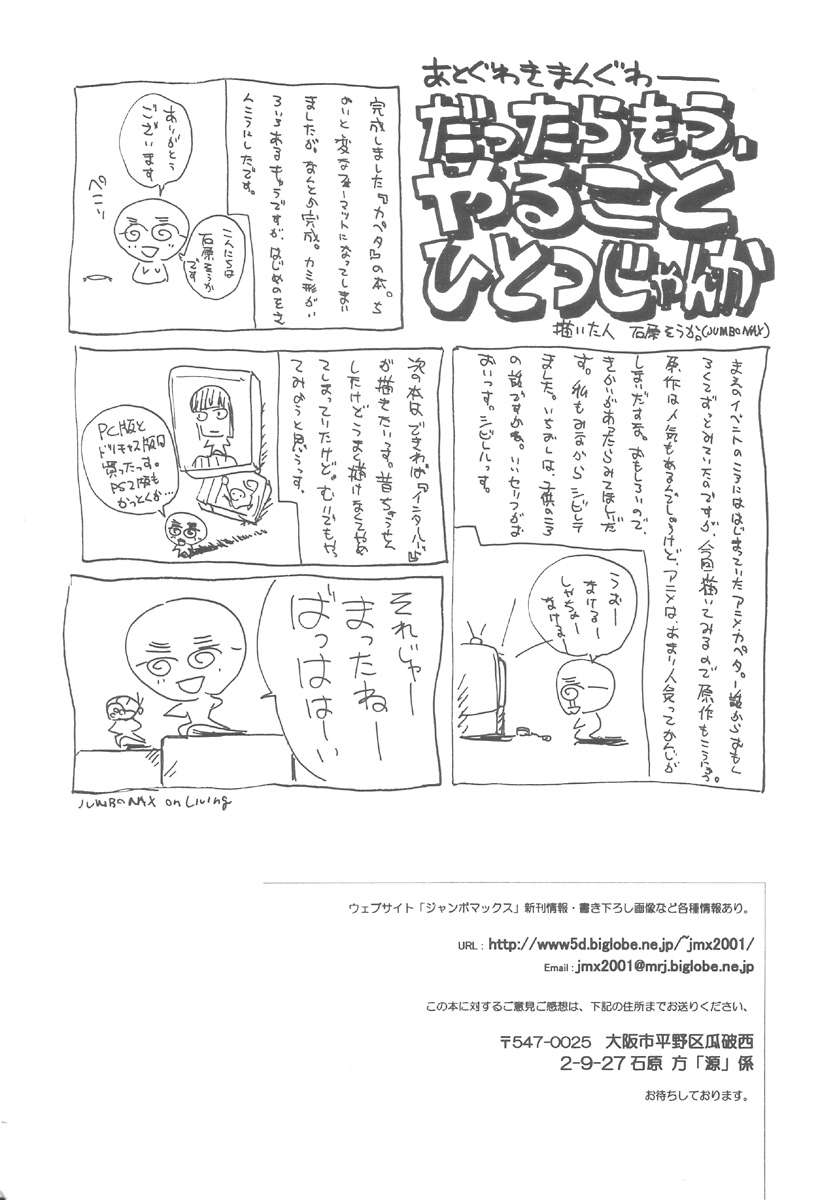 あとぐわきまんぐわー
だったらもう、
やること
ひとつじゃんか
描いた人 石原そうか。(JUMBO MAX)
完成しました『カペタ』の本。ち
ょいと変なフォーマットになってしまい
ましたが。なんとか完成。カミ形がい
ろいろあるキャラですが、はじめのモさ
んこうにしたです。
ありがとう
ございます
こんにちは
石原そうか
です
ペこーり
まえのイベントのころにははじまっていたアニメ、カペタ。一話からおもし
ろくてずっとみていたのですが、今回描いてみるので原作もこうにゅう。
原作は人気もあるんでしょうけど、アニメは、あまり人気ってかんじが
しまいだすな。おもしろいので、
きかいがあったらみてほしいだ
す。私もみながらシビレテ
ました。いちおしは、子供のころ
の話ですかね。いいセリフがお
おいっす。シビレルっす。
うおー
まけるー
しゃちょー
まけるー
次の本は、できれば『インタールード』
が描きたいす。昔ちょうせん
したけどうまく描けなくてやめ
てしまっていたけど。むりでもやっ
てみようと思うっす。
PC版と
ドリキャス版は
買ったっす。
PS2版も
かっとくか…
それじゃー
まったねー
ばっははーい
JUMBO MAX on Living
ウェブサイト「ジャンボマックス」新刊情報・書き下ろし画像など各種情報あり。
URL : http://www5d.biglobe.ne.jp/~jmx2001/
Email : jmx2001@mrj.biglobe.ne.jp
この本に対するご意見ご感想は、下記の住所までお送りください、
〒547-0025 大阪市平野区瓜破西
2-9-27 石原 方「源」係
お待ちしております。